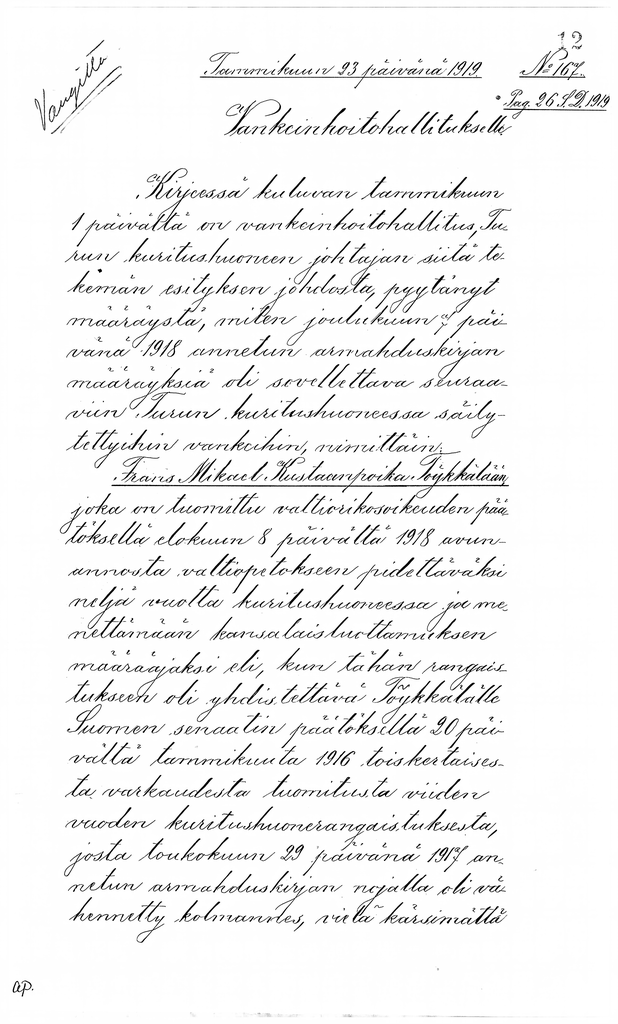 12
Tammikuun 23 päivänä 1919. No 167.
Vangilta
Pag. 26 S.D. 1919
Vankeinhoitohallitukselle
Kirjeessä kuluvan tammikuun
1 päivältä on vankeinhoitohallitus, Tu-
run kuritushuoneen johtajan siitä te-
kemän esityksen johdosta, pyytänyt
määräystä, miten joulukuun 7 päi-
vänä 1918 annetun armahduskirjan
määräyksiä oli sovellettava seuraa-
viin Turun kuritushuoneessa säily-
tettyihin vankeihin, nimittäin:
Frans Mikael Kustaanpoika Töykkälään,
joka on tuomittu valtiorikosoikeuden pää-
töksellä elokuun 8 päivältä 1918 avun-
annosta valtiopetokseen pidettäväksi
neljä vuotta kuritushuoneessa ja me-
nettämään kansalaisluottamuksen
määräajaksi eli, kun tähän rangais-
tukseen oli yhdistettävä Töykkälälle
Suomen senaatin päätöksellä 20 päi-
vältä tammikuuta 1916 toiskertaises-
ta varkaudesta tuomitusta viiden
vuoden kuritushuonerangaistuksesta,
josta toukokuun 29 päivänä 1917 an-
netun armahduskirjan nojalla oli vä-
hennetty kolmannes, vielä kärsimättä
AP.